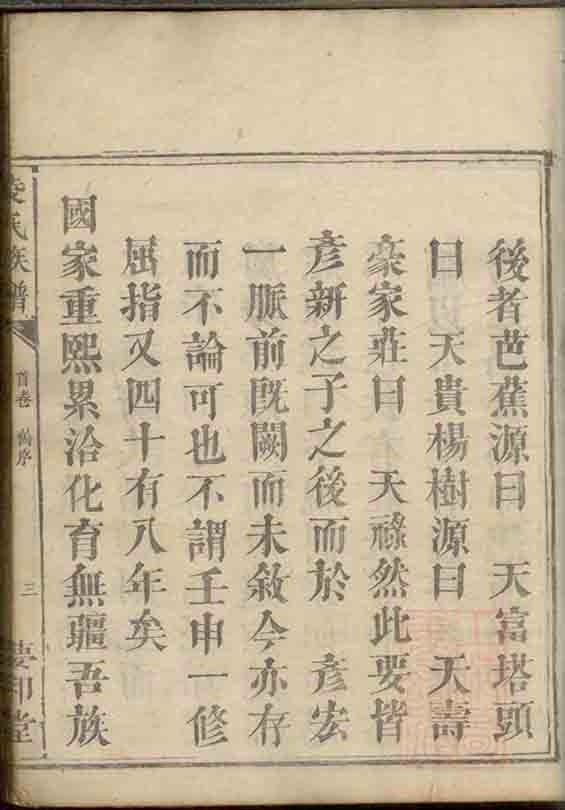 後者芭蕉源曰　天富塔頭
曰　天貴楊樹源曰　天壽
豪家莊曰　天祿然此要皆
彥新之子之後而於　彥宏
一脈前既闕而未敘今亦存
而不論可也不謂壬申一修
屈指又四十有八年矣
國家重熙累洽化育無疆吾族
氏族譜
首卷　序
三
堂